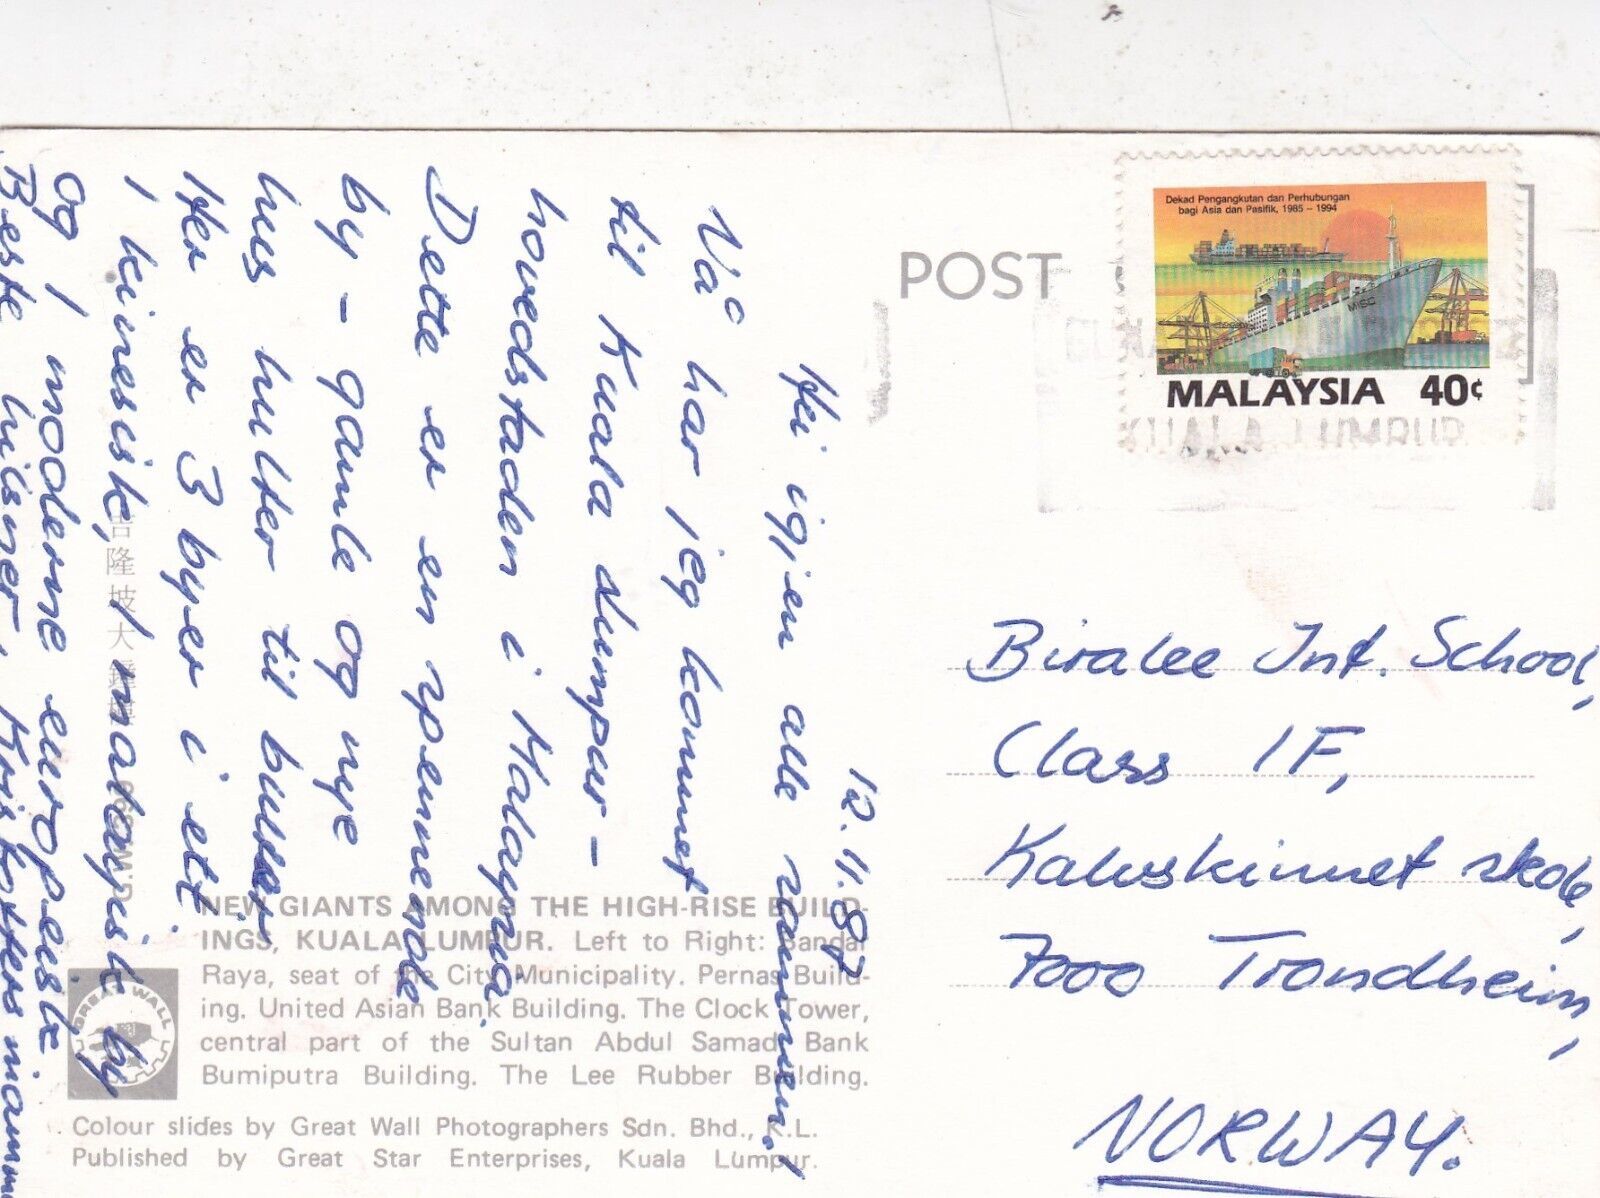 12.11.87
Hei igjen alle sammen!
Nå har jeg kommet
til Kuala Lumpur –
hovedstaden i Malaysia.
Dette er en spennende
by – gamle og nye
hus hulter til bulter.
Her er 3 byer i ett.
1 kinesisk, 1 malayisk by
og 1 moderne europeisk.
Beste hilsner, Kristoffers mamma
POST
Dekad Pengangkutan dan Perhubungan
bagi Asia dan Pasifik, 1985 – 1994
MISC
MALAYSIA 40¢
KUALA LUMPUR
Biralee Int. School,
Class 1F,
Kalvskinnet skole,
7000 Trondheim,
NORWAY.
吉隆坡大鐘樓
NEW GIANTS AMONG THE HIGH-RISE BUILD-
INGS, KUALA LUMPUR. Left to Right: Bandar
Raya, seat of the City Municipality. Pernas Build-
ing. United Asian Bank Building. The Clock Tower,
central part of the Sultan Abdul Samad. Bank
Bumiputra Building. The Lee Rubber Building.
GREAT WALL
Colour slides by Great Wall Photographers Sdn. Bhd., K.L.
Published by Great Star Enterprises, Kuala Lumpur.